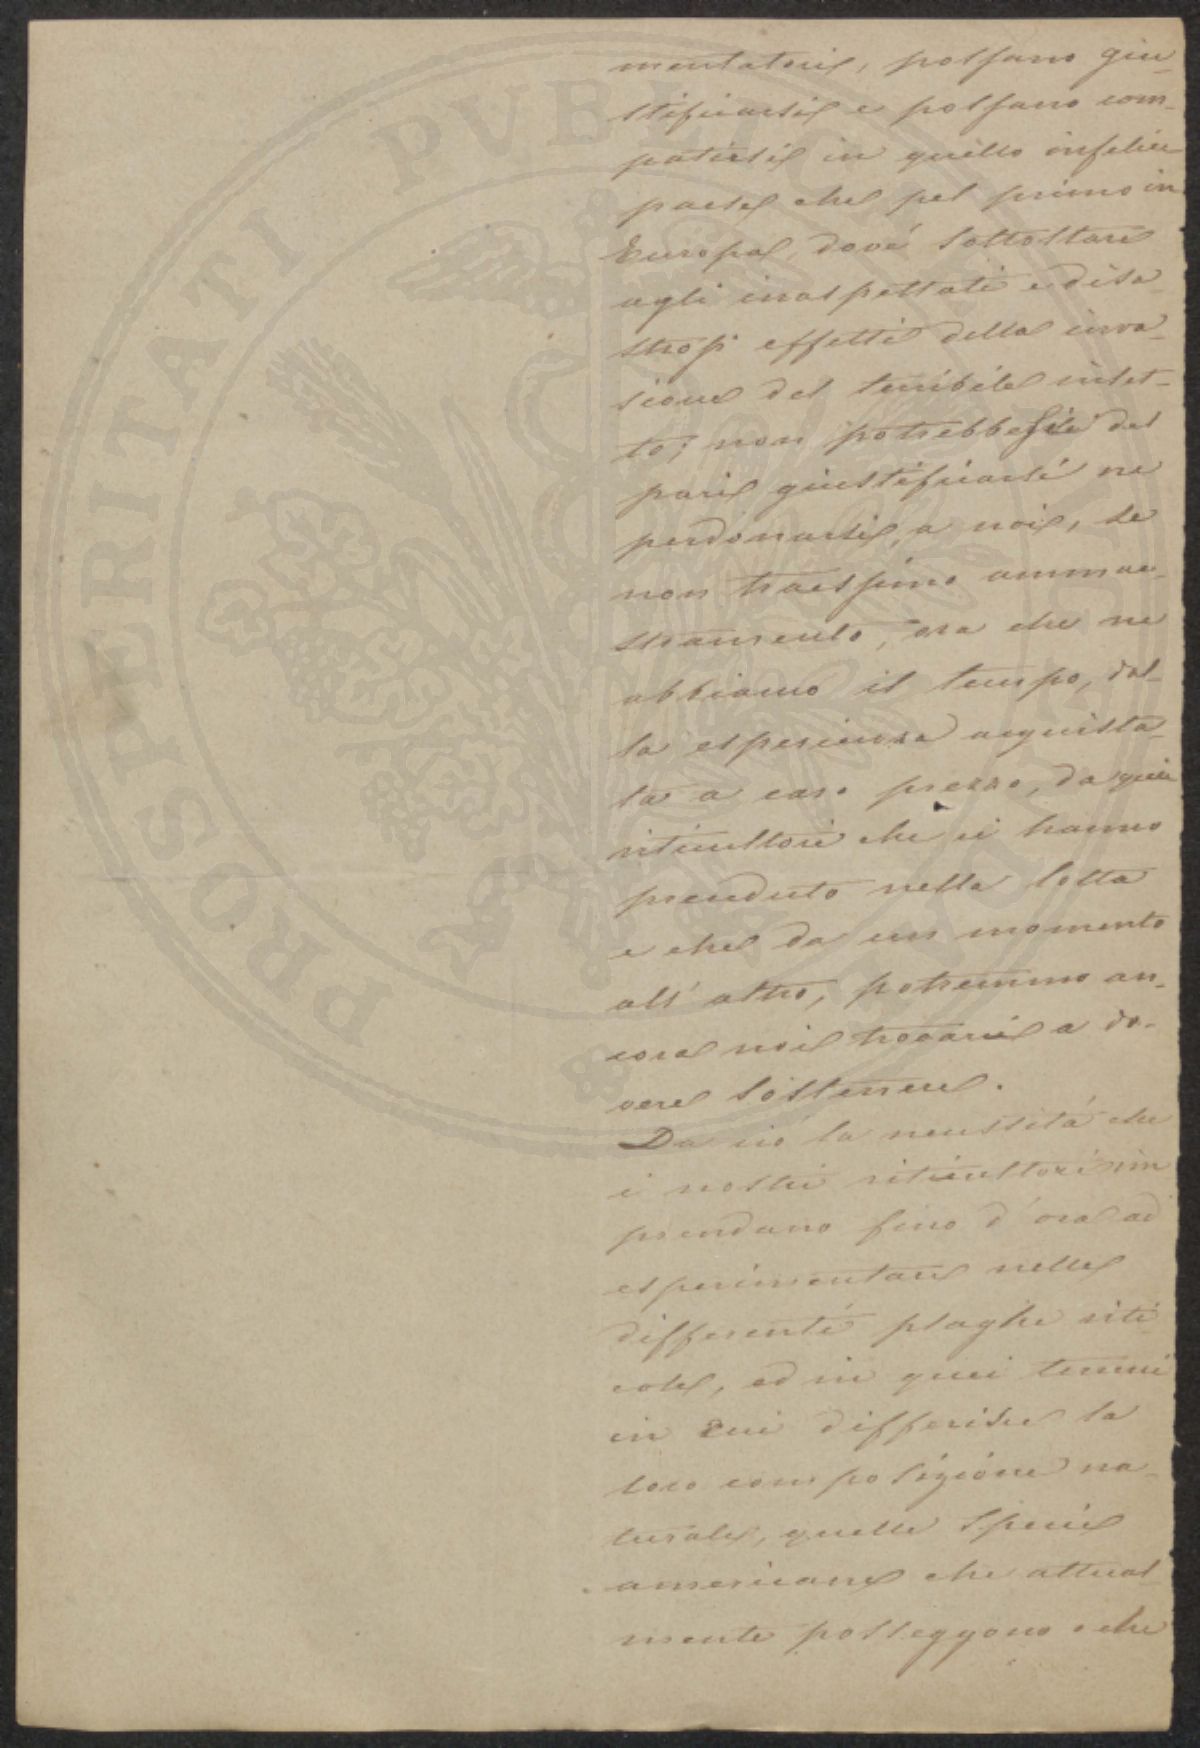 PROSPERITATI PVBLICAE
mentatori, possano giu-
stificarsi e possano com-
patirsi in quello infelice
paese che pel primo in
Europa, dové sottostare
agli inaspettati e disa-
strosi effetti della inva-
sione del terribile inset-
to; non potrebbesi del
pari giustificarsi ne
perdonarsi, a noi, se
non traessimo ammae-
stramento, ora che ne
abbiamo il tempo, dal-
la esperienza acquista-
ta a caro prezzo, da quei
viticultori che ci hanno
preceduto nella lotta
e che da un momento
all'altro, potremmo an-
cora noi trovarci a do-
vere sostenere.
Da ció la necessitá che
i nostri viticultori im
prendano fino d'ora ad
esperimentare nelle
differenti plaghe viti
cole, ed in quei terreni
in cui differisce la
loro composizione na-
turale, quelle specie
americane che attual-
mente posseggono e che